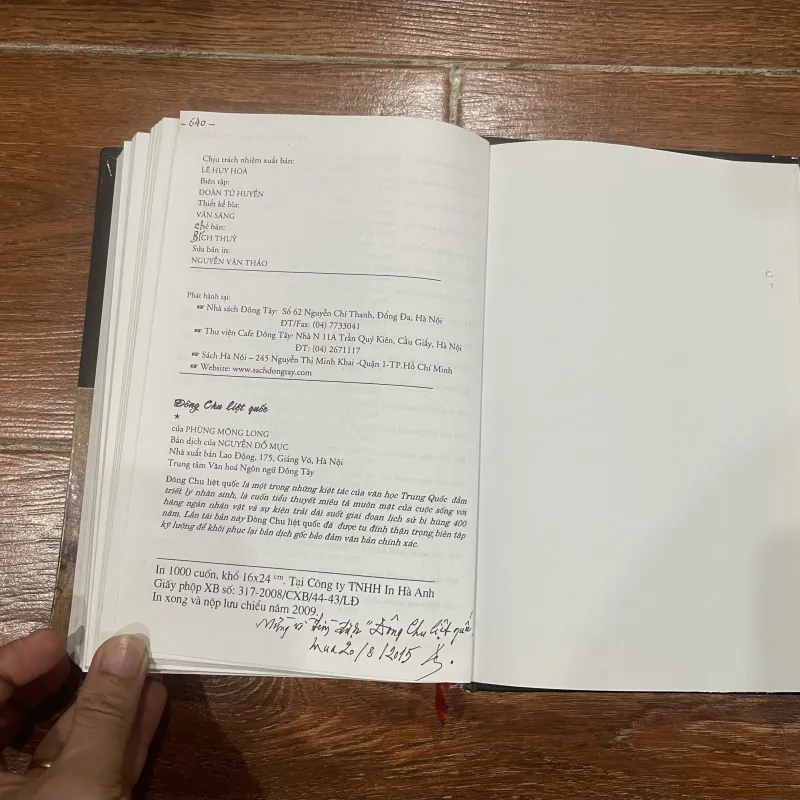 - 640 -
Chịu trách nhiệm xuất bản:
LÊ HUY HOÀ
Biên tập:
ĐOÀN TỬ HUYẾN
Thiết kế bìa:
VĂN SÁNG
Chế bản:
BÍCH THUỶ
Sửa bản in:
NGUYỄN VĂN THẢO
Phát hành tại:
☞ Nhà sách Đông Tây: Số 62 Nguyễn Chí Thanh, Đống Đa, Hà Nội
ĐT/Fax: (04) 7733041
☞ Thư viện Cafe Đông Tây: Nhà N 11A Trần Quý Kiên, Cầu Giấy, Hà Nội
ĐT: (04) 2671117
☞ Sách Hà Nội – 245 Nguyễn Thị Minh Khai -Quận 1-TP.Hồ Chí Minh
☞ Website: www.sachdongtay.com
Đông Chu liệt quốc
★
của PHÙNG MỘNG LONG
Bản dịch của NGUYỄN ĐỖ MỤC
Nhà xuất bản Lao Động, 175, Giảng Võ, Hà Nội
Trung tâm Văn hoá Ngôn ngữ Đông Tây
Đông Chu liệt quốc là một trong những kiệt tác của văn học Trung Quốc đẫm
triết lý nhân sinh, là cuốn tiểu thuyết miêu tả muôn mặt của cuộc sống với
hàng ngàn nhân vật và sự kiện trải dài suốt giai đoạn lịch sử bi hùng 400
năm. Lần tái bản này Đông Chu liệt quốc đã được tu đính thận trọng, biên tập
kỹ lưỡng để khôi phục lại bản dịch gốc bảo đảm văn bản chính xác.
In 1000 cuốn, khổ 16x24 cm. Tại Công ty TNHH In Hà Anh
Giấy phộp XB số: 317-2008/CXB/44-43/LĐ
In xong và nộp lưu chiểu năm 2009.
Mừng vì tìm được "Đông Chu liệt quốc"
mua 20/8/2015